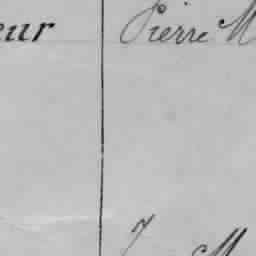 eur Pierre M